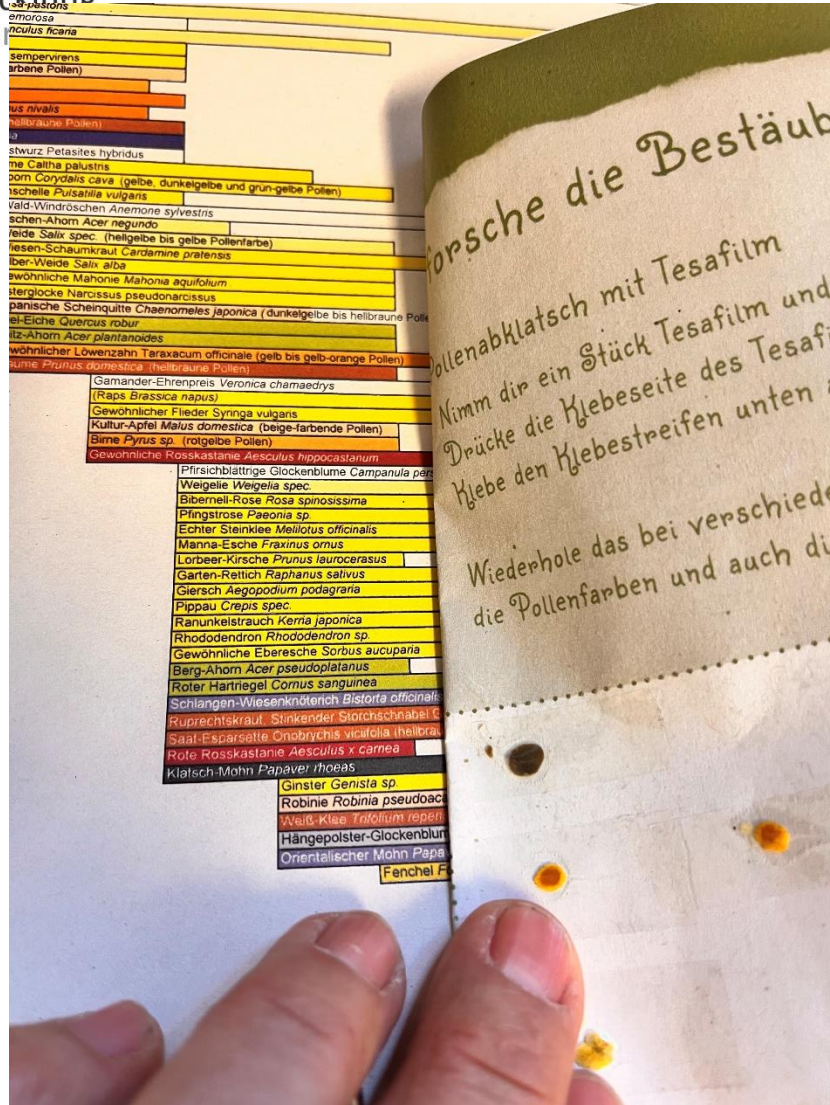 emorosa
nculus ficaria
sempervirens
arbene Pollen)
us nivalis
hellbraune Pollen)
stwurz Petasites hybridus
me Caltha palustris
orn Corydalis cava (gelbe, dunkelgelbe und grün-gelbe Pollen)
nschelle Pulsatilla vulgaris
Wald-Windröschen Anemone sylvestris
schen-Ahorn Acer negundo
Weide Salix spec. (hellgelbe bis gelbe Pollenfarbe)
Wiesen-Schaumkraut Cardamine pratensis
lber-Weide Salix alba
ewöhnliche Mahonie Mahonia aquifolium
sterglocke Narcissus pseudonarcissus
panische Scheinquitte Chaenomeles japonica (dunkelgelbe bis hellbraune Polle
el-Eiche Quercus robur
itz-Ahorn Acer plantanoides
wöhnlicher Löwenzahn Taraxacum officinale (gelb bis gelb-orange Pollen)
aume Prunus domestica (hellbraune Pollen)
Gamander-Ehrenpreis Veronica chamaedrys
(Raps Brassica napus)
Gewöhnlicher Flieder Syringa vulgaris
Kultur-Apfel Malus domestica (beige-farbende Pollen)
Birne Pyrus sp. (rotgelbe Pollen)
Gewöhnliche Rosskastanie Aesculus hippocastanum
Pfirsichblättrige Glockenblume Campanula pers
Weigelie Weigelia spec.
Bibernell-Rose Rosa spinosissima
Pfingstrose Paeonia sp.
Echter Steinklee Melilotus officinalis
Manna-Esche Fraxinus ornus
Lorbeer-Kirsche Prunus laurocerasus
Garten-Rettich Raphanus sativus
Giersch Aegopodium podagraria
Pippau Crepis spec.
Ranunkelstrauch Kerria japonica
Rhododendron Rhododendron sp.
Gewöhnliche Eberesche Sorbus aucuparia
Berg-Ahorn Acer pseudoplatanus
Roter Hartriegel Cornus sanguinea
Schlangen-Wiesenknöterich Bistorta officinalis
Ruprechtskraut, Stinkender Storchschnabel G
Saat-Esparsette Onobrychis viciifolia (hellbrau
Rote Rosskastanie Aesculus x carnea
Klatsch-Mohn Papaver rhoeas
Ginster Genista sp.
Robinie Robinia pseudoaca
Weiß-Klee Trifolium repen
Hängepolster-Glockenblum
Orientalischer Mohn Papa
Fenchel F
forsche die Bestäub
Pollenabklatsch mit Tesafilm
Nimm dir ein Stück Tesafilm und
Drücke die Klebeseite des Tesafi
Klebe den Klebestreifen unten a
Wiederhole das bei verschiede
die Pollenfarben und auch di